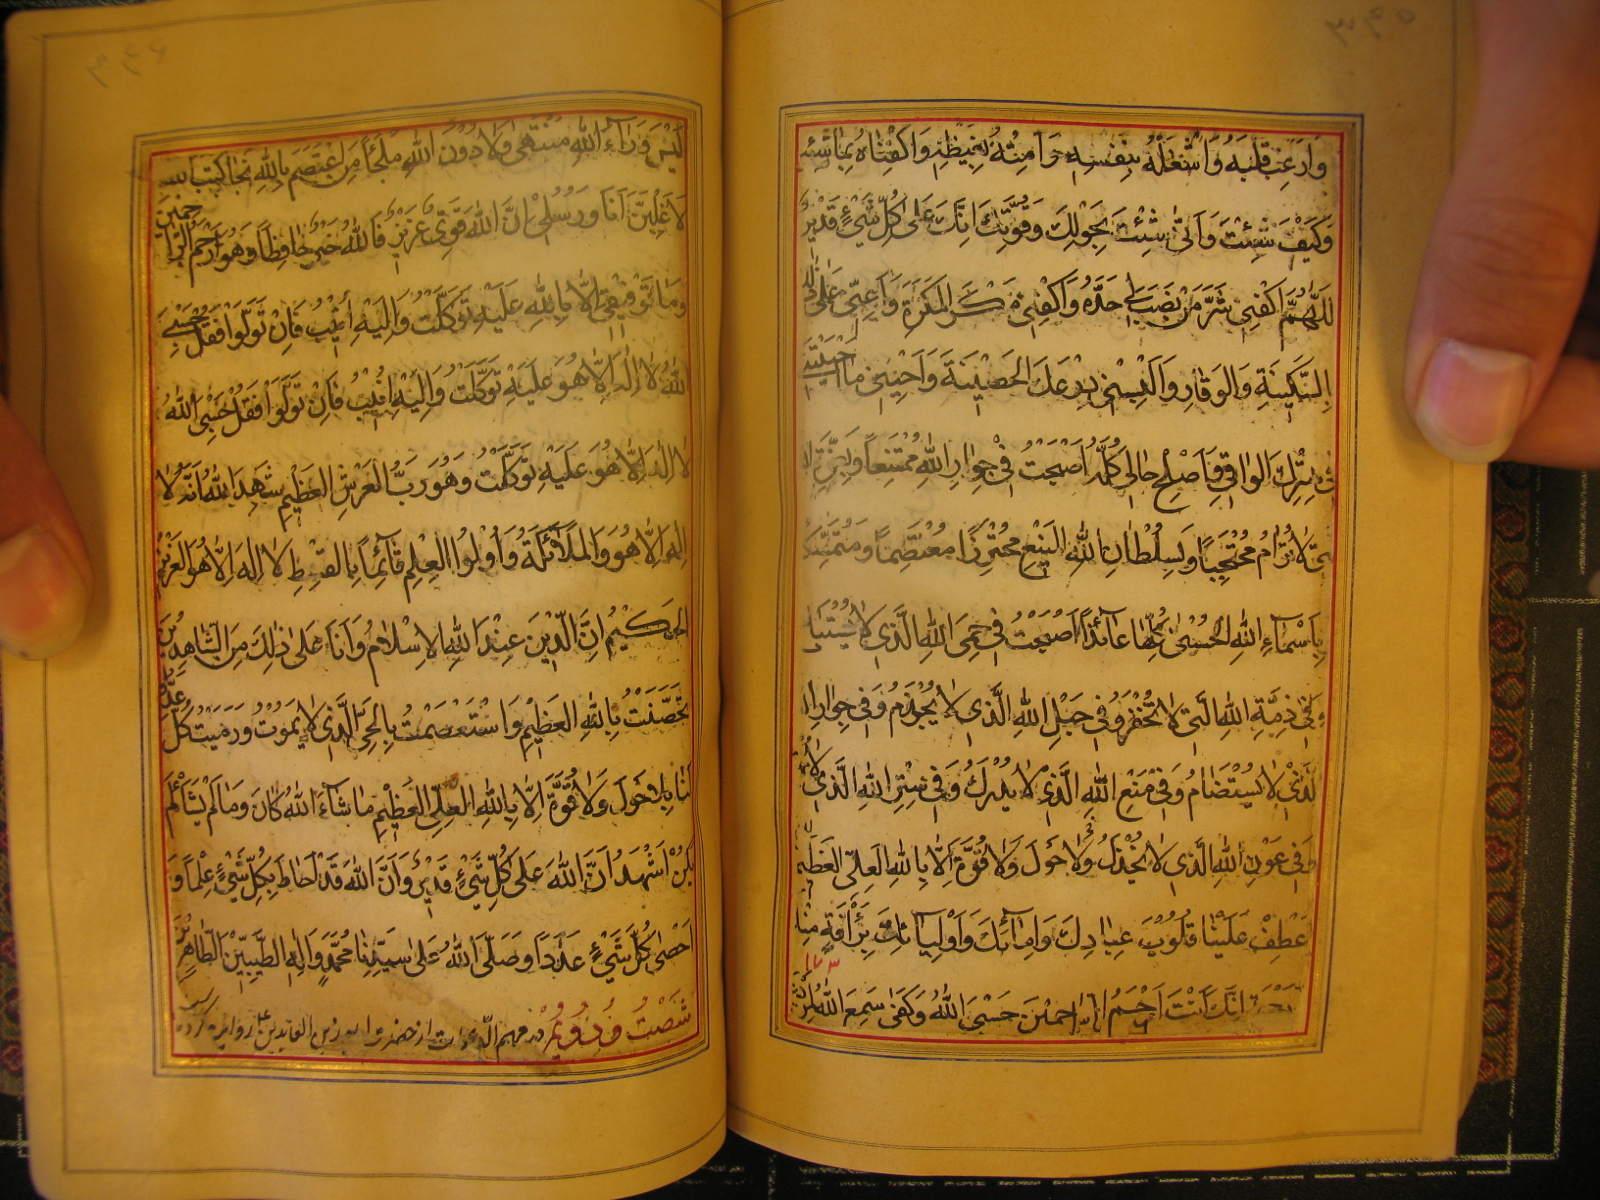 وَارْعِبْ قَلْبَهُ وَاشْغَلْهُ بِنَفْسِهِ وَاَمِتْهُ بِغَيْظِهِ وَاكْفِنَاهُ بِمَا شِئْتَ
وَكَيْفَ شِئْتَ وَاَنّٰى شِئْتَ بِحَوْلِكَ وَقُوَّتِكَ اِنَّكَ عَلٰى كُلِّ شَيْءٍ قَدِيْرٌ
اَللّٰهُمَّ اكْفِنِى شَرَّ مَنْ نَصَبَ لِى حَدَّهُ وَاكْفِنِى مَكْرَ الْمَكَرَةِ وَاَعِنِّى عَلٰى ذٰلِكَ
بِالسَّكِيْنَةِ وَالْوَقَارِ وَاَلْبِسْنِى دِرْعَكَ الْحَصِيْنَةَ وَاَحْيِنِى مَا اَحْيَيْتَنِى
فِى سِتْرِكَ الْوَاقِى وَاَصْلِحْ حَالِى كُلَّهُ اَصْبَحْتُ فِى جِوَارِ اللّٰهِ مُمْتَنِعًا وَبِعِزَّةِ اللّٰهِ
الَّتِى لَا تُرَامُ مُحْتَجِبًا وَبِسُلْطَانِ اللّٰهِ الْمَنِيْعِ مُحْتَرِزًا مُعْتَصِمًا وَمُتَمَسِّكًا
بِاَسْمَاءِ اللّٰهِ الْحُسْنٰى كُلِّهَا عَائِذًا اَصْبَحْتُ فِى حِمَى اللّٰهِ الَّذِى لَا يُسْتَبَاحُ
وَفِى ذِمَّةِ اللّٰهِ الَّتِى لَا تُخْفَرُ وَفِى حَبْلِ اللّٰهِ الَّذِى لَا يُجْذَمُ وَفِى جِوَارِ اللّٰهِ
الَّذِى لَا يُسْتَضَامُ وَفِى مَنْعِ اللّٰهِ الَّذِى لَا يُدْرَكُ وَفِى سِتْرِ اللّٰهِ الَّذِى لَا
وَفِى عَوْنِ اللّٰهِ الَّذِى لَا يُخْذَلُ وَلَا حَوْلَ وَلَا قُوَّةَ اِلَّا بِاللّٰهِ الْعَلِىِّ الْعَظِيْمِ
اَعْطِفْ عَلَيْنَا قُلُوْبَ عِبَادِكَ وَاِمَائِكَ وَاَوْلِيَائِكَ بِرَأْفَةٍ مِنْكَ
وَرَحْمَةٍ اِنَّكَ اَنْتَ اَرْحَمُ الرَّاحِمِيْنَ حَسْبِىَ اللّٰهُ وَكَفٰى سَمِعَ اللّٰهُ لِمَنْ
لَيْسَ وَرَآءَ اللّٰهِ مُنْتَهٰى وَلَا دُوْنَ اللّٰهِ مَلْجَأٌ مَنِ اعْتَصَمَ بِاللّٰهِ نَجَا كَتَبَ اللّٰهُ
لَاَغْلِبَنَّ اَنَا وَرُسُلِىْ اِنَّ اللّٰهَ قَوِىٌّ عَزِيْزٌ فَاللّٰهُ خَيْرٌ حَافِظًا وَهُوَ اَرْحَمُ الرَّاحِمِيْنَ
وَمَا تَوْفِيْقِى اِلَّا بِاللّٰهِ عَلَيْهِ تَوَكَّلْتُ وَاِلَيْهِ اُنِيْبُ فَاِنْ تَوَلَّوْا فَقُلْ حَسْبِىَ
اللّٰهُ لَا اِلٰهَ اِلَّا هُوَ عَلَيْهِ تَوَكَّلْتُ وَاِلَيْهِ اُنِيْبُ فَاِنْ تَوَلَّوْا فَقُلْ حَسْبِىَ اللّٰهُ
لَا اِلٰهَ اِلَّا هُوَ عَلَيْهِ تَوَكَّلْتُ وَهُوَ رَبُّ الْعَرْشِ الْعَظِيْمِ شَهِدَ اللّٰهُ اَنَّهُ لَا
اِلٰهَ اِلَّا هُوَ وَالْمَلَآئِكَةُ وَاُولُوا الْعِلْمِ قَآئِمًا بِالْقِسْطِ لَا اِلٰهَ اِلَّا هُوَ الْعَزِيْزُ
الْحَكِيْمُ اِنَّ الدِّيْنَ عِنْدَ اللّٰهِ الْاِسْلَامُ وَاَنَا عَلٰى ذٰلِكَ مِنَ الشَّاهِدِيْنَ
تَحَصَّنْتُ بِاللّٰهِ الْعَظِيْمِ وَاسْتَعْصَمْتُ بِالْحَىِّ الَّذِى لَا يَمُوْتُ وَرَمَيْتُ كُلَّ عَدُوٍّ
لَنَا بِلَا حَوْلَ وَلَا قُوَّةَ اِلَّا بِاللّٰهِ الْعَلِىِّ الْعَظِيْمِ مَا شَآءَ اللّٰهُ كَانَ وَمَا لَمْ يَشَأْ لَمْ
يَكُنْ اَشْهَدُ اَنَّ اللّٰهَ عَلٰى كُلِّ شَيْءٍ قَدِيْرٌ وَاَنَّ اللّٰهَ قَدْ اَحَاطَ بِكُلِّ شَيْءٍ عِلْمًا وَ
اَحْصٰى كُلَّ شَيْءٍ عَدَدًا وَصَلَّى اللّٰهُ عَلٰى سَيِّدِنَا مُحَمَّدٍ وَاٰلِهِ الطَّيِّبِيْنَ الطَّاهِرِيْنَ
شَصْتُ وَدُوُيُمْ در مهج الدعوات از حضرت امام زين العابدين ع روايت كرده